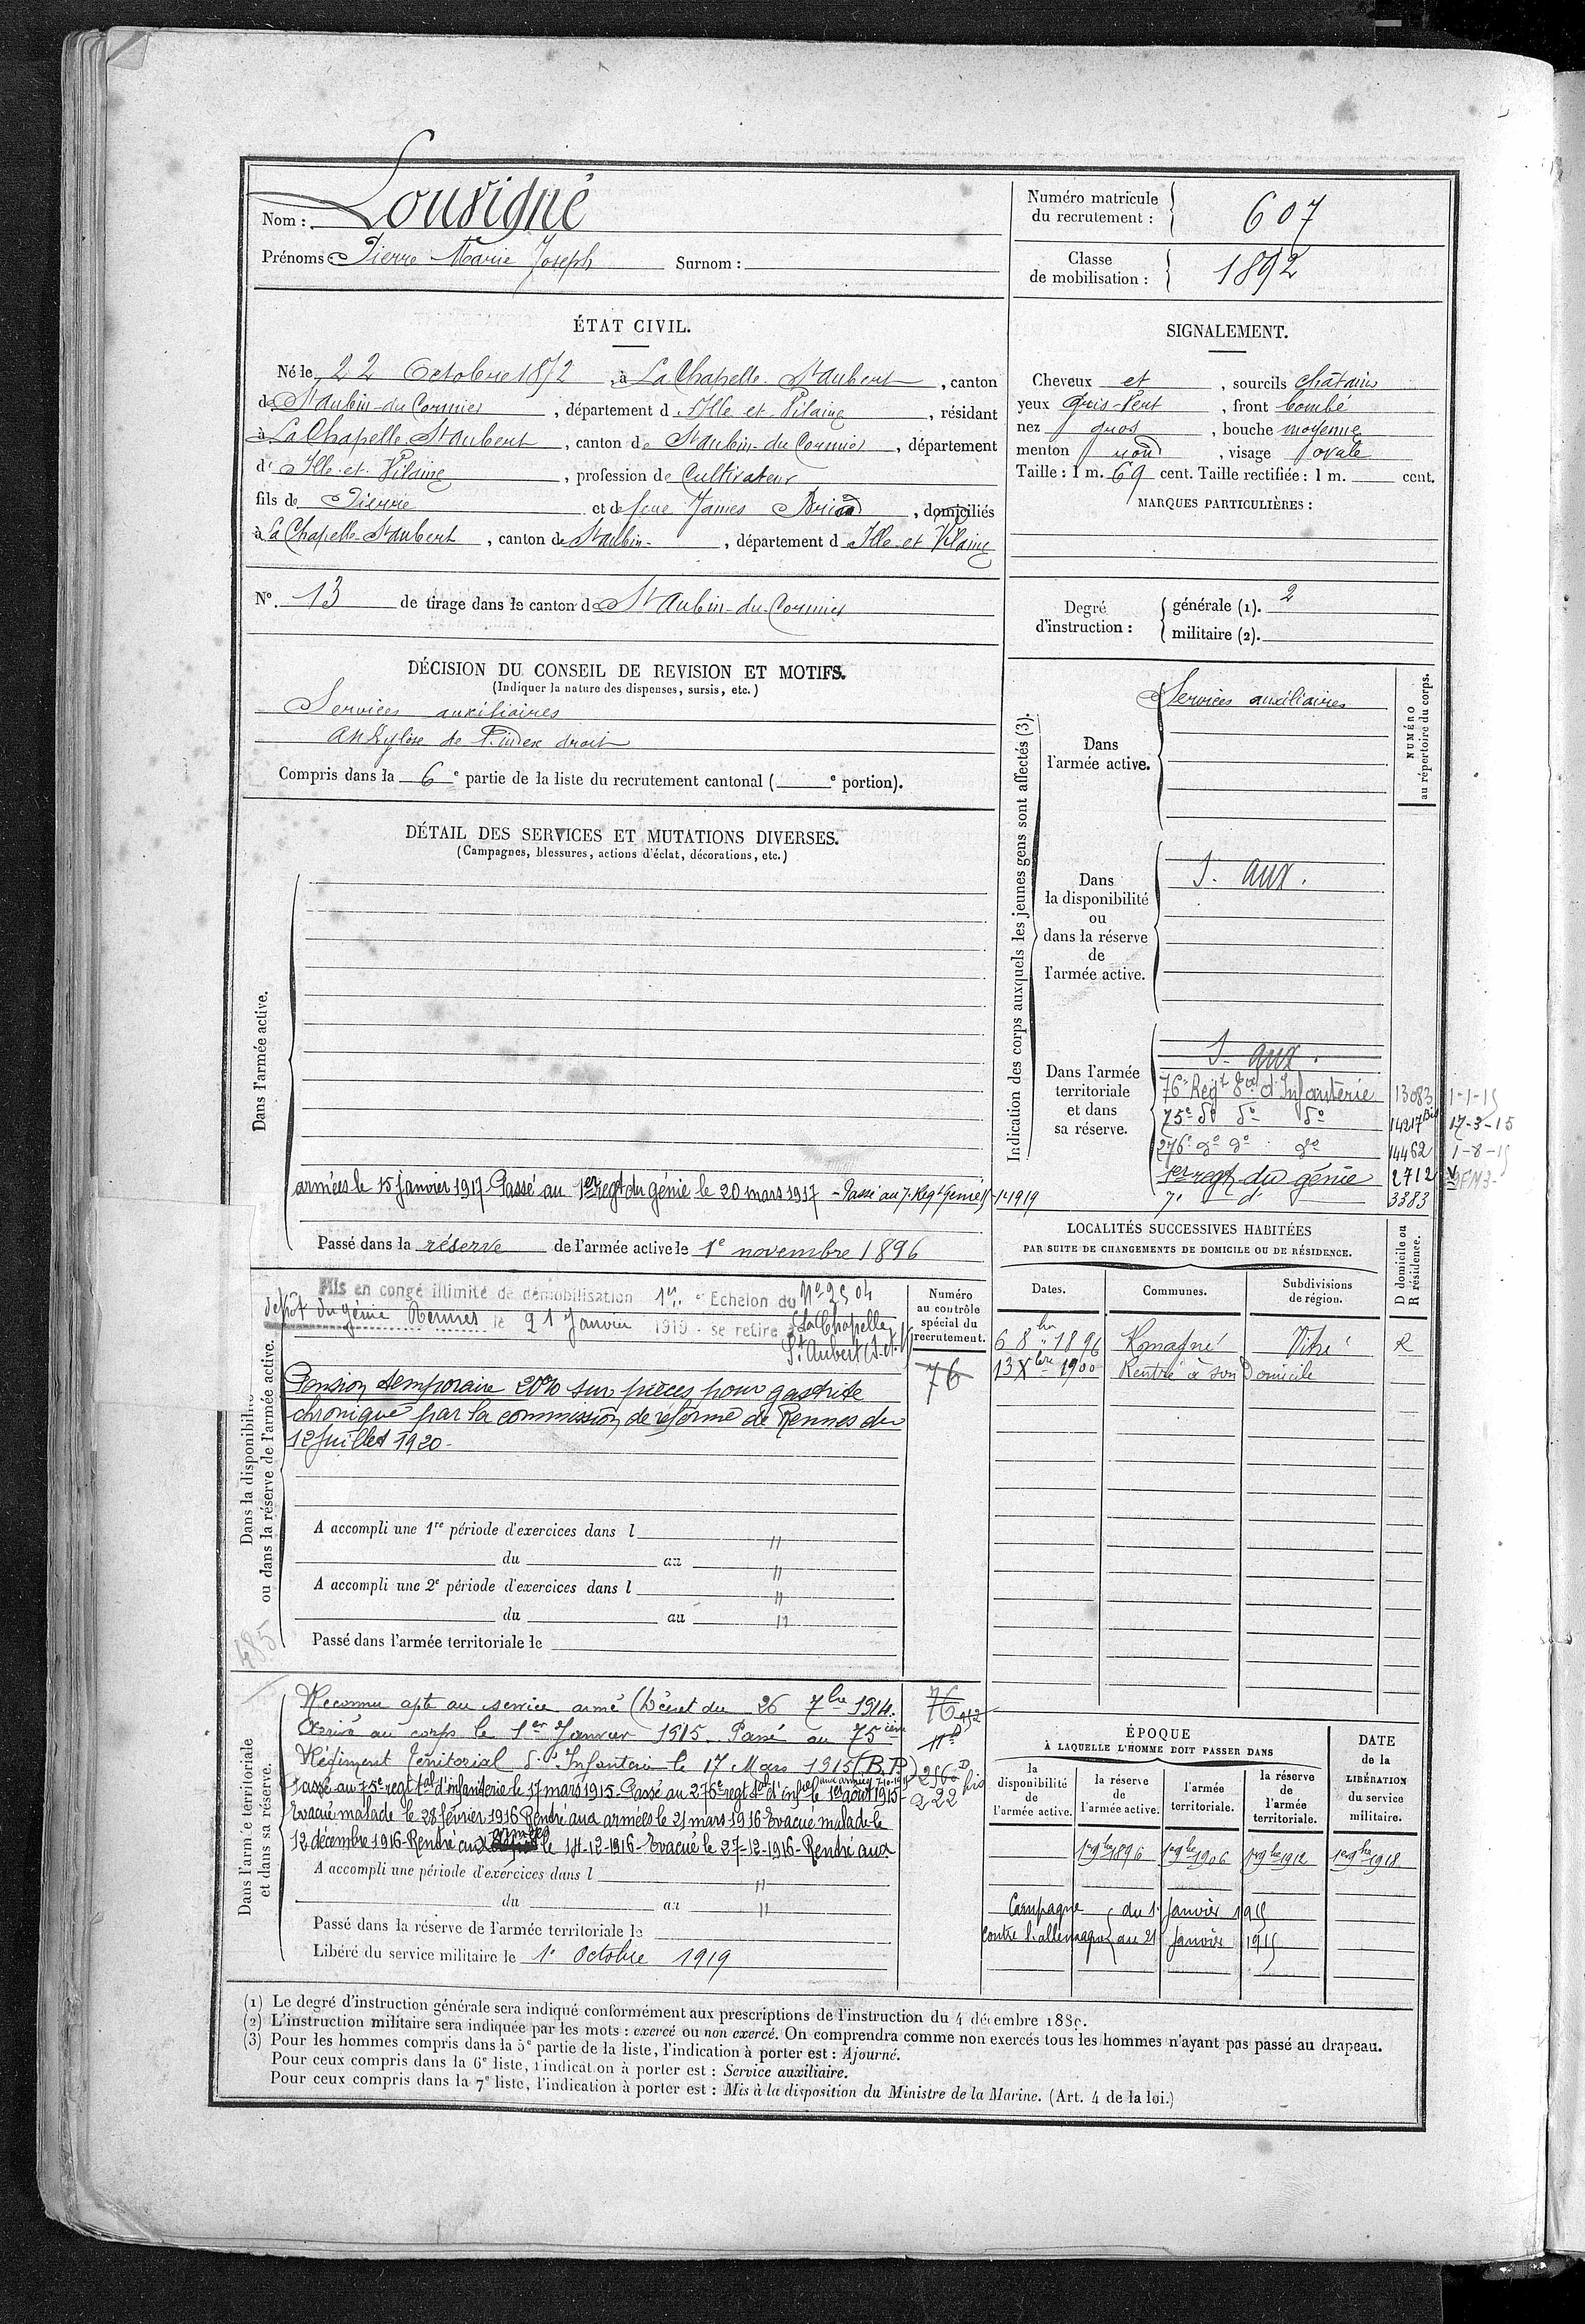 Nom : Louvigné
Prénoms Pierre Marie Joseph Surnom :
Numéro matricule du recrutement : 607
Classe de mobilisation : 1892
ÉTAT CIVIL.
Né le 22 Octobre 1872, à La Chapelle St aubert, canton
de St aubin-du Cormier, département d'Ille et Vilaine, résidant
à La Chapelle St aubert, canton de St aubin-du Cormier, département
d'Ille-et-Vilaine, profession de Cultivateur
fils de Pierre et de feue James, domiciliés
à La Chapelle-St aubert, canton de St aubin-, département d Ille et Vilaine
N° 13 de tirage dans le canton de St Aubin-du-Cormier
SIGNALEMENT.
Cheveux et, sourcils châtains
yeux gris-vert, front bombé
nez gros, bouche moyenne
menton rond, visage ovale
Taille : 1 m. 69 cent. Taille rectifiée : 1 m. cent.
MARQUES PARTICULIÈRES :
Degré d'instruction : générale (1). 2
militaire (2).
DÉCISION DU CONSEIL DE REVISION ET MOTIFS.
(Indiquer la nature des dispenses, sursis, etc.)
Services auxiliaires
Ankylose de l'index droit
Compris dans la 6e partie de la liste du recrutement cantonal ( e portion).
DÉTAIL DES SERVICES ET MUTATIONS DIVERSES.
(Campagnes, blessures, actions d'éclat, décorations, etc.)
Dans l'armée active.
armées le 15 janvier 1917 Passé au 1er regt du génie le 20 mars 1917 - Passé au 7e Regt Génie 1-1-1919
Passé dans la réserve de l'armée active le 1e novembre 1896
Indication des corps auxquels les jeunes gens sont affectés (3).
NUMÉRO au répertoire du corps.
Dans l'armée active.
Services auxiliaires
Dans la disponibilité ou dans la réserve de l'armée active.
S. aux.
Dans l'armée territoriale et dans sa réserve.
S. aux.
76e Regt Eal d'Infanterie 13083 1-1-15
75e do do do 14217 Bis 17-3-15
276e do do do 14462 1-8-15
1er regt du génie 2712
7e d 3383
LOCALITÉS SUCCESSIVES HABITÉES
PAR SUITE DE CHANGEMENTS DE DOMICILE OU DE RÉSIDENCE.
Dates. Communes. Subdivisions de région. D domicile ou R résidence.
6 8bre 1896 Romagné Vitré R
13 Xbre 1900 Rentré à son Domicile
Dans la disponibilité ou dans la réserve de l'armée active.
Numéro au contrôle spécial du recrutement.
76
Mis en congé illimité de démobilisation 1er Echelon du No 2504
dépôt du génie Rennes le 21 Janvier 1919 - se retire à La Chapelle
St Aubert
Pension temporaire 20% sur pièces pour gastrite
chronique par la commission de réforme de Rennes du
12 Juillet 1920-
A accompli une 1re période d'exercices dans l
du au
A accompli une 2e période d'exercices dans l
du au
Passé dans l'armée territoriale le
485
Dans l'armée territoriale et dans sa réserve.
Reconnu apte au service armé (Décret du 26 7bre 1914.
Arrivé au corps le 1er Janvier 1915. Passé au 75ième
Régiment Territorial d'Infanterie le 17 Mars 1915 (B.P)
Passé au 75e regt tal d'infanterie le 17 mars 1915. Passé au 276e regt tal d'infie le 1er août 1915-
Evacué malade le 28 février 1916 Rentré aux armées le 21 mars 1916 Evacué malade le
12 décembre 1916-Rentré aux armées le 14-12-1916-Evacué le 27-12-1916-Rentré aux
76
222
A accompli une période d'exercices dans l
du au
Passé dans la réserve de l'armée territoriale le
Libéré du service militaire le 1e Octobre 1919
ÉPOQUE
À LAQUELLE L'HOMME DOIT PASSER DANS
la disponibilité de l'armée active. la réserve de l'armée active. l'armée territoriale. la réserve de l'armée territoriale.
DATE de la LIBÉRATION du service militaire.
1er 9bre 1896 1er 9bre 1906 1er 9bre 1912 1er 9bre 1918
Campagne du 1e Janvier 1915
contre l'allemagne au 21 Janvier 1919
(1) Le degré d'instruction générale sera indiqué conformément aux prescriptions de l'instruction du 4 décembre 1889.
(2) L'instruction militaire sera indiquée par les mots : exercé ou non exercé. On comprendra comme non exercés tous les hommes n'ayant pas passé au drapeau.
(3) Pour les hommes compris dans la 5e partie de la liste, l'indication à porter est : Ajourné.
Pour ceux compris dans la 6e liste, l'indication à porter est : Service auxiliaire.
Pour ceux compris dans la 7e liste, l'indication à porter est : Mis à la disposition du Ministre de la Marine. (Art. 4 de la loi.)